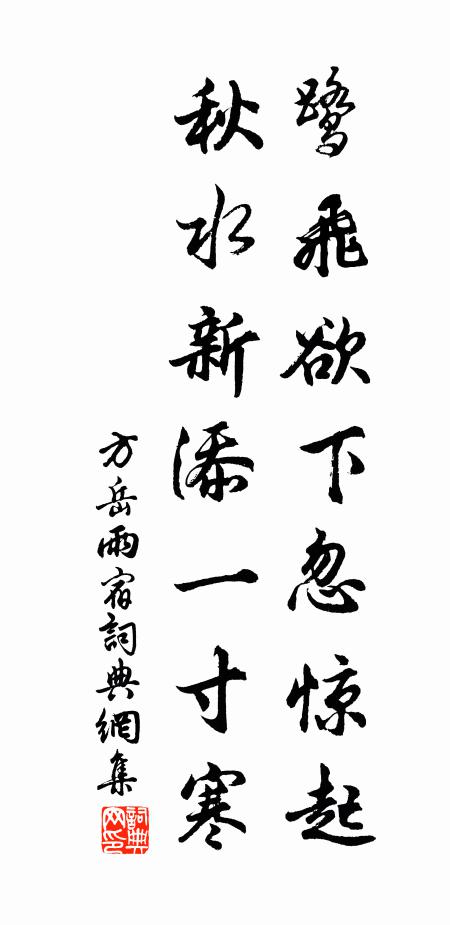 鹭飛欲下忽惊起
秋水新添一寸寒
方岳雨宿詞典網集
詞典
网印